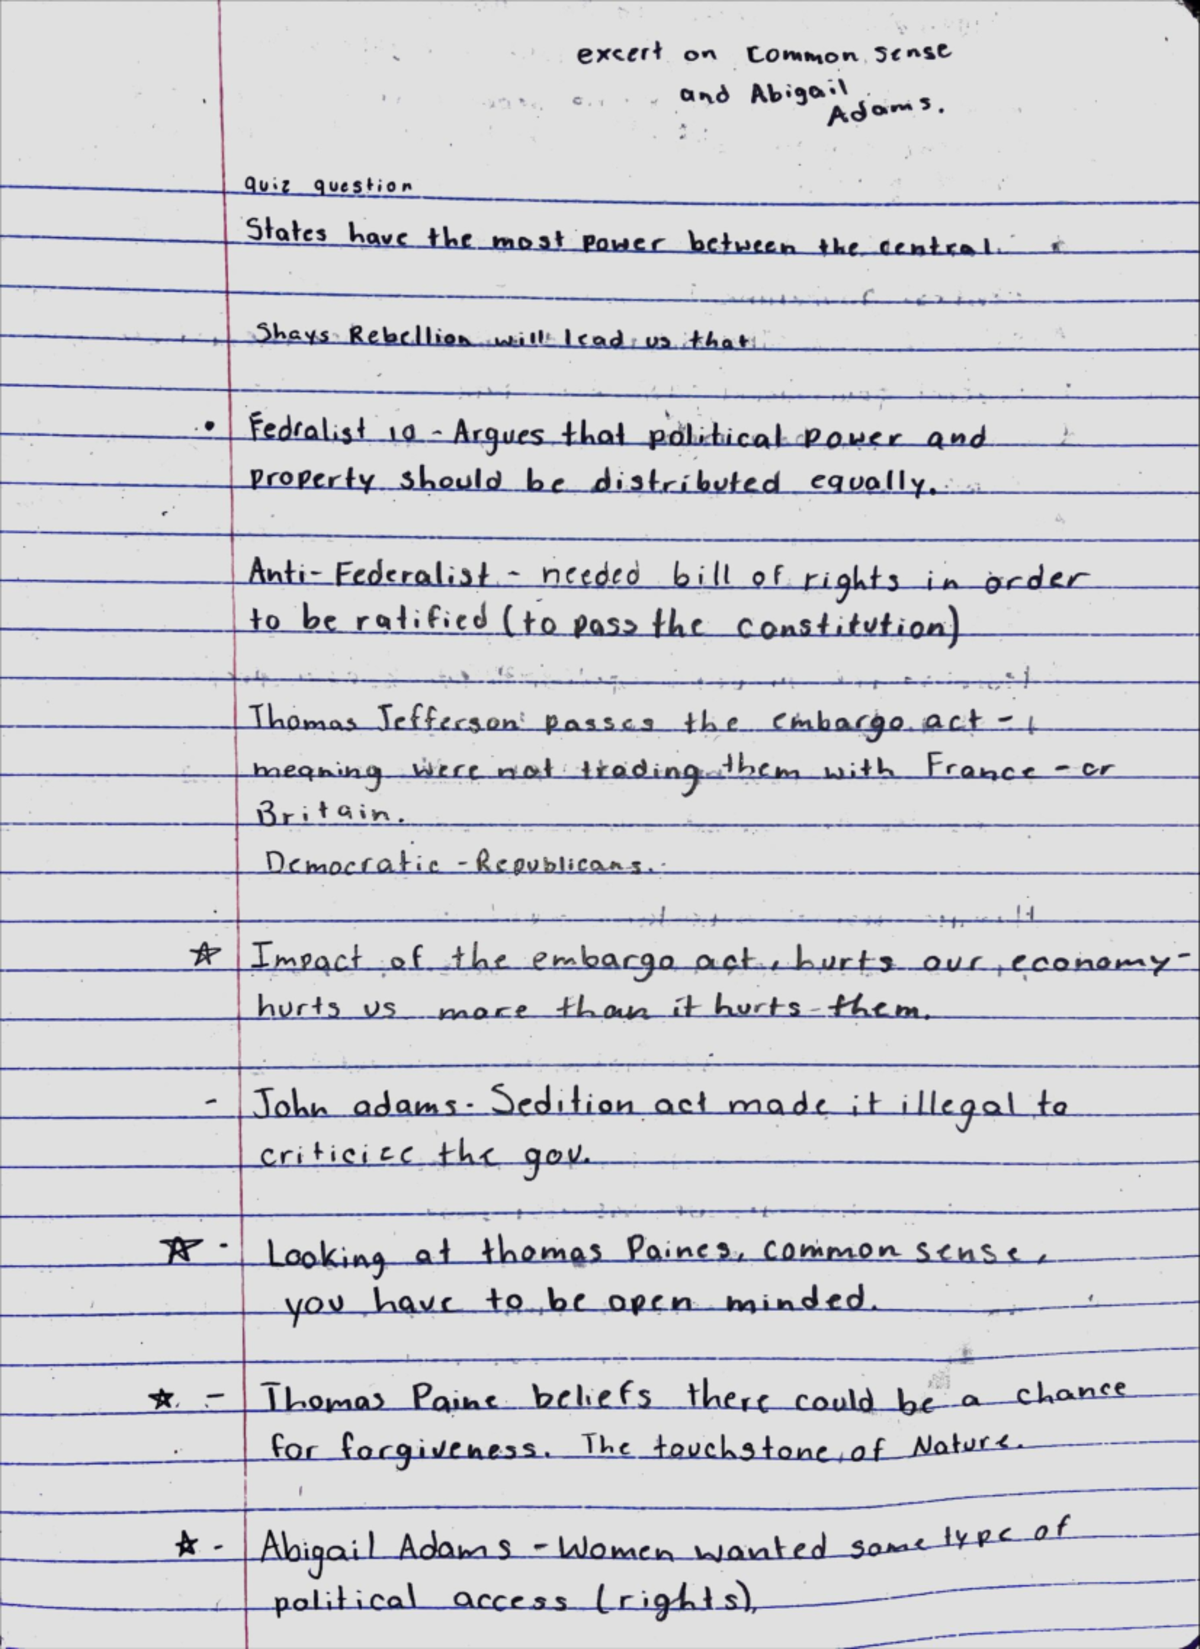 excert on Common Sense
and Abigail
Adams.
quiz question
States have the most power between the central.
Shays Rebellion will lead us that
• Fedralist 10 - Argues that political power and
property should be distributed equally.
Anti-Federalist - needed bill of rights in order
to be ratified (to pass the constitution)
Thomas Jefferson passes the embargo act -
meaning were not trading them with France - or
Britain.
Democratic - Republicans.
☆ Impact of the embargo act, hurts our economy-
hurts us more than it hurts them.
- John adams - Sedition act made it illegal to
criticize the gov.
☆ - Looking at thomas Paines, common sense,
you have to be open minded.
☆ - Thomas Paine beliefs there could be a chance
for forgiveness. The touchstone of Nature.
☆ - Abigail Adams - Women wanted some type of
political access (rights),